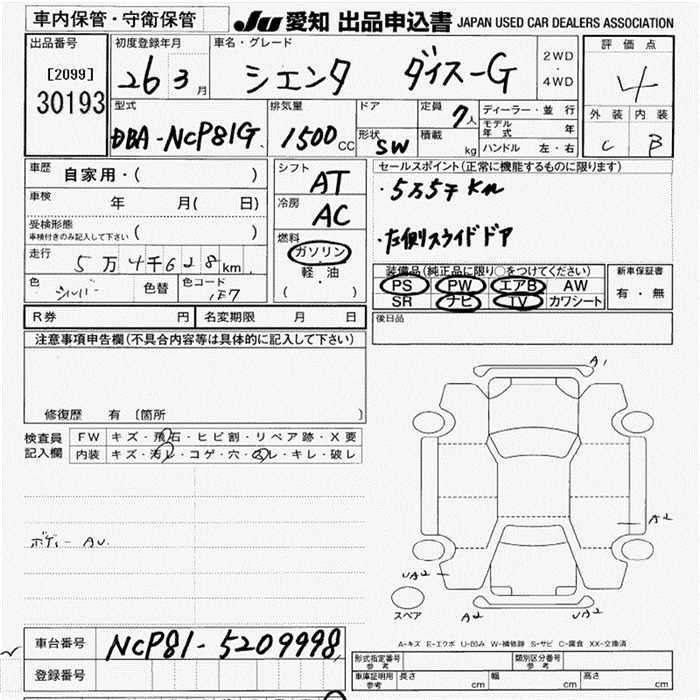 車内保管・守衛保管 JU 愛知 出品申込書 JAPAN USED CAR DEALERS ASSOCIATION
出品番号 初度登録年月 車名・グレード 2WD ・ 4WD 評価点
[2099] 26 3月 シエンタ ダイス-G 4
30193 型式 排気量 ドア 定員 7人 ディーラー・並行 外装 内装
DBA-NCP81G 1500CC 形状 SW 積載 kg モデル年式 年 C B
ハンドル 左・右
車歴 自家用・( ) シフト AT セールスポイント(正常に機能するものに限ります)
車検 年 月( 日) 冷房 AC ・5万5千Km
受検形態 車検付きのみ記入して下さい ( ) 燃料 ガソリン ・左側スライドドア
走行 5万4千628km 軽・油
色 シルバー 色替 色コード 1E7 ( )
装備品(純正品に限り○をつけてください) 新車保証書
PS PW エアB AW 有・無
SR ナビ TV カワシート
R券 円 名変期限 月 日 後日品
注意事項申告欄(不具合内容等は具体的に記入して下さい)
修復歴 有 〔箇所 〕
検査員記入欄 FW キズ・飛石・ヒビ割・リペア跡・X要
内装 キズ・汚レ・コゲ・穴・スレ・キレ・破レ
A1
A2
ボディー AU.
UA2
スペア A2 UA2
A-キズ E-エクボ U-凹み W-補修跡 S-サビ C-腐食 XX-交換済
車台番号 NCP81-5209998
登録番号
形式指定番号 参考 類別区分番号 参考
車庫証明用 参考 長さ cm 幅 cm 高さ cm